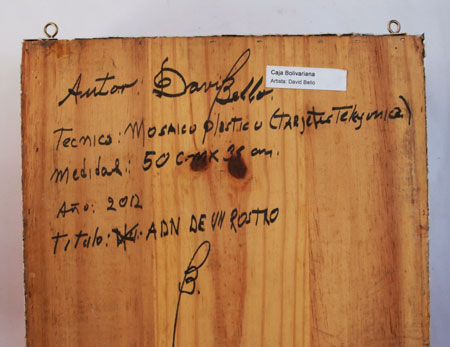 Autor: David Bello.
Caja Bolivariana
Artista: David Bello
Tecnica: Mosaico plastico (tarjetas Telefonica)
Medidas: 50 cm x 35 cm.
Año: 2012
Titulo: ADN DE UN ROSTRO
B.